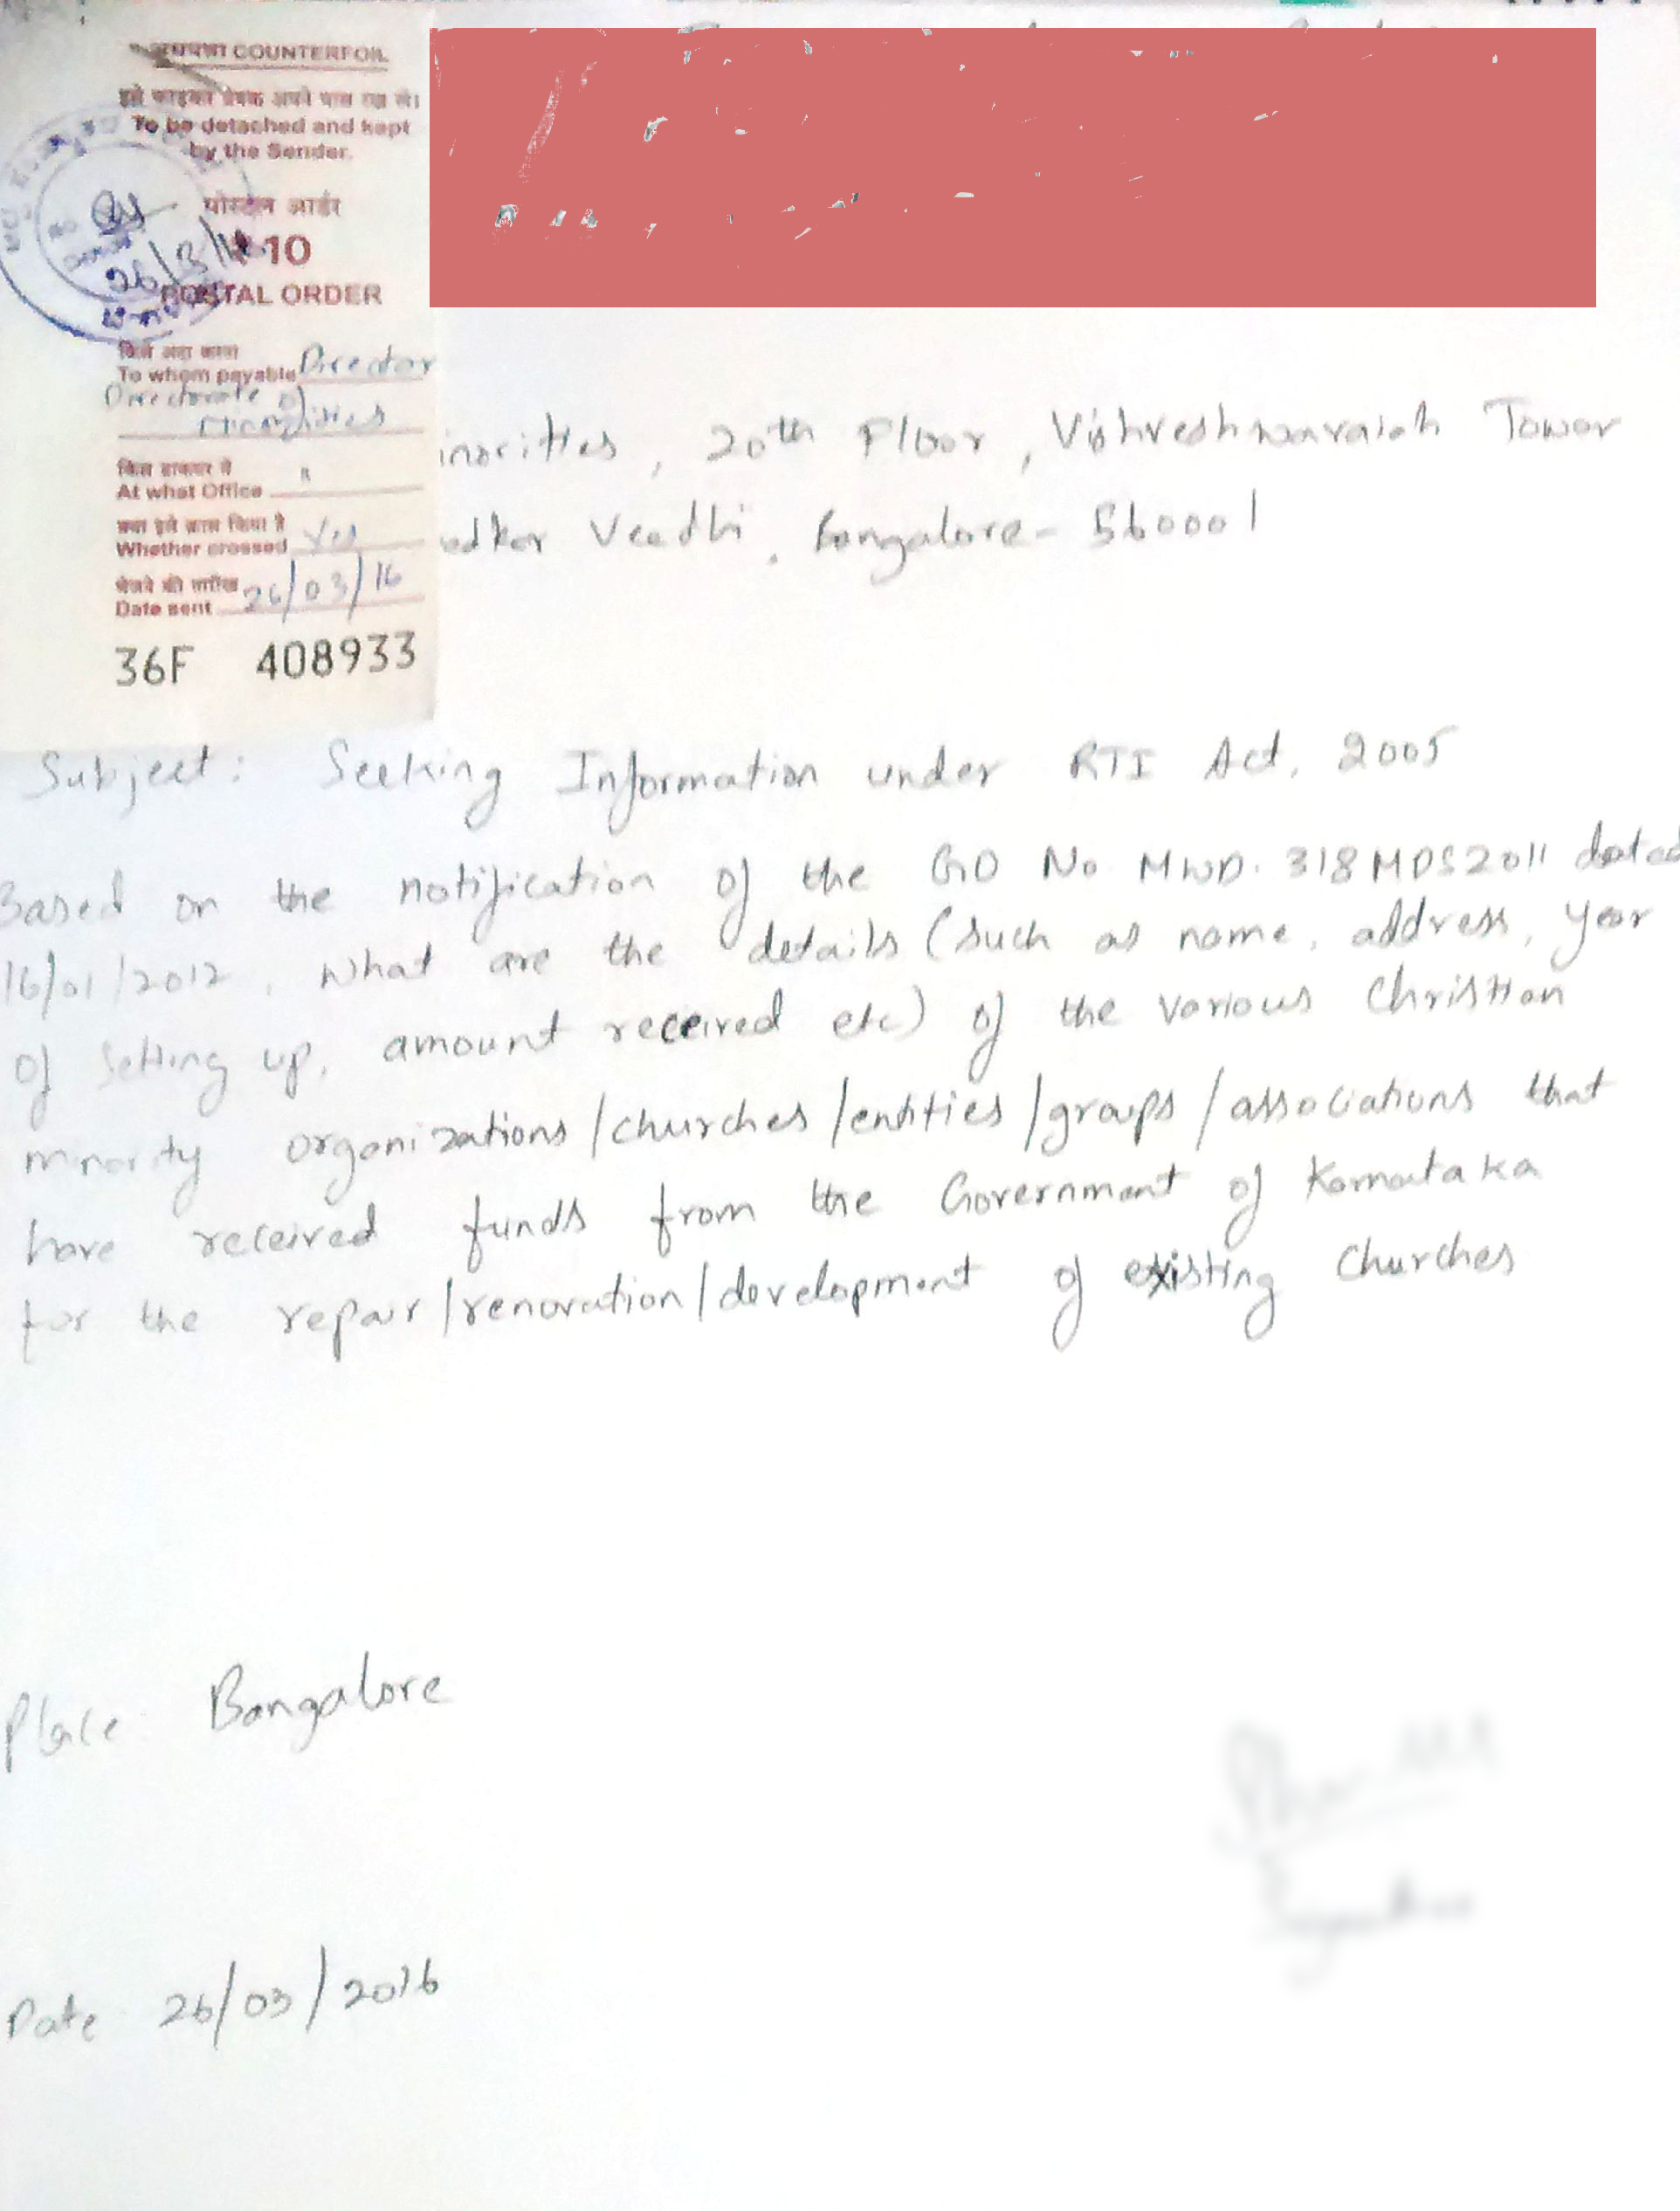 COUNTERFOIL
इसे फाड़कर प्रेषक अपने पास रख ले।
To be detached and kept
by the Sender.
पोस्टल आर्डर
₹10
26/3/16
POSTAL ORDER
To whom payable Director
Directorate of
Minorities
At what Office
Whether crossed Yes
भेजने की तारीख
Date sent 26/03/16
36F 408933
inorities, 20th Floor, Vishveshwaraiah Tower
edkar Veedhi, Bangalore - 560001
Subject: Seeking Information under RTI Act, 2005
Based on the notification of the GO No MWD. 318 MDS2011 dated
16/01/2012, what are the details (such as name, address, year
of setting up, amount received etc) of the various Christian
minority organizations/churches/entities/groups/associations that
have received funds from the Government of Karnataka
for the repair/renovation/development of existing Churches
Place: Bangalore
Date 26/03/2016